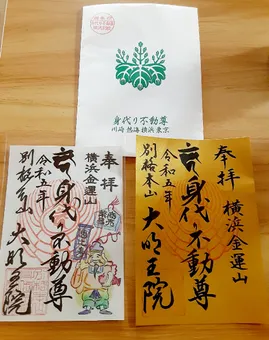 身代り不動尊
川崎 熱海 横浜 東京
奉拝
横浜金運山
身代り不動尊
令和五年
別格本山
大明王院
奉拝
横浜金運山
身代り不動尊
令和五年
別格本山
大明王院